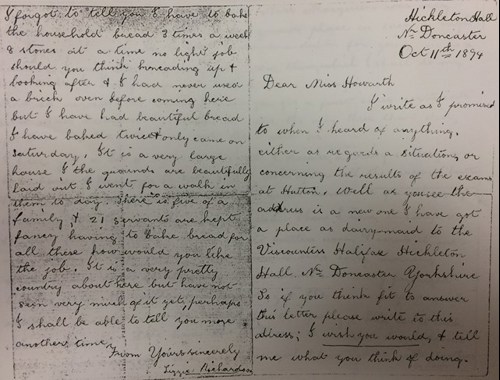 Hickleton Hall
Nr. Doncaster
Oct 11th 1894
Dear Miss Howarth
I write as I promised
to when I heard of anything,
either as regards a situation, or
concerning the results of the exams
at Hutton. Well as you see the
address is a new one I have got
a place as dairymaid to the
Viscountess Halifax Hickleton
Hall, Nr. Doncaster Yorkshire
So if you think fit to answer
this letter please write to this
adress; I wish you would, & tell
me what you think of doing.
I forgot to tell you I have to bake
the household bread 3 times a week
8 stones at a time no light job
should you think kneading up &
looking after & I had never used
a brick oven before coming here
but I have had beautiful bread
I have baked twice & only came on
Saturday. It is a very large
house & the grounds are beautifully
laid out I went for a walk in
them to day There is five of a
family & 21 servants are kept
fancy having to bake bread for
all these how would you like
the job. It is a very pretty
country about here but have not
seen very much of it yet, perhaps
I shall be able to tell you more
another time,
From Yours sincerely
Lizzie Richardson